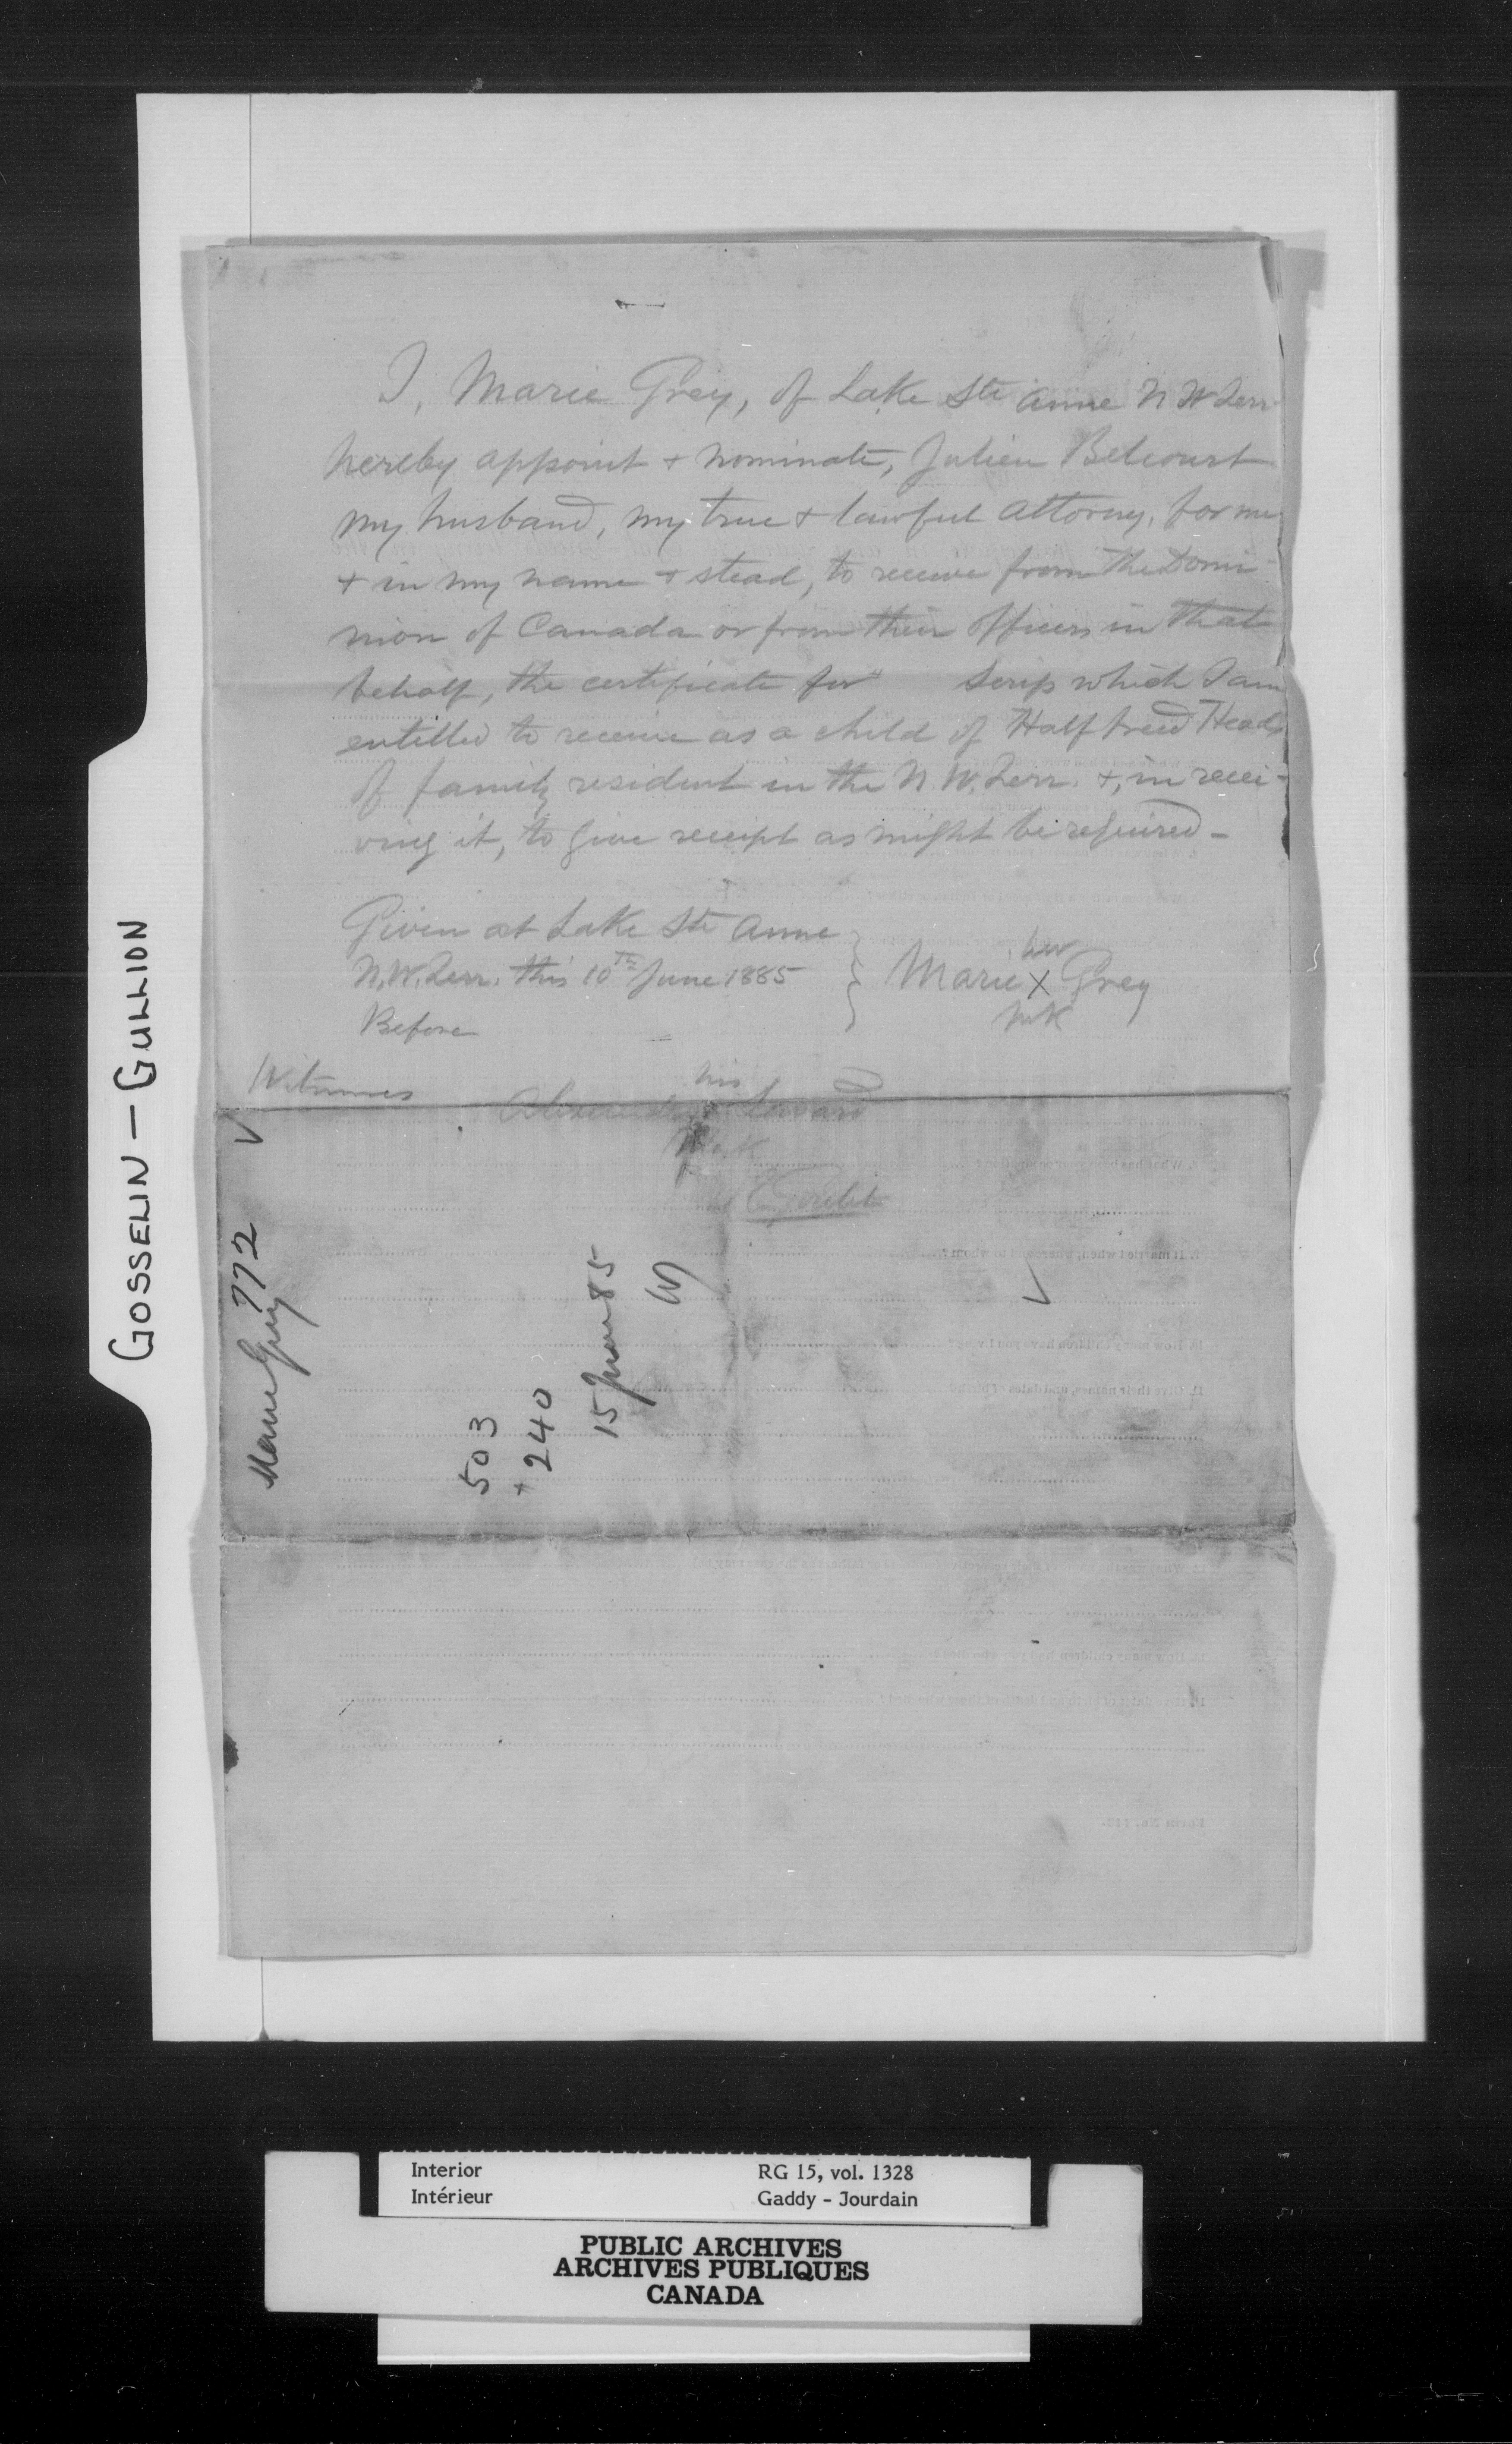 I, Marie Grey, of Lake Ste Anne N W Terr.
hereby appoint + nominate, Julien Belcourt
my husband, my true + lawful attorney, for me
+ in my name + stead, to receive from the Domi-
nion of Canada or from their officers in that
behalf, the certificate for scrip which I am
entitled to receive as a child of Halfbreed Heads
of family resident in the N. W. Terr. +, in recei-
ving it, to give receipt as might be required -
Given at Lake Ste Anne
N. W. Terr. this 10th June 1885
Before
her
Marie X Grey
mk
Witnesses
his
Mark
Marie Grey 772
503
+ 240
15 June 85
GOSSELIN - GULLION
Interior
Intérieur
RG 15, vol. 1328
Gaddy - Jourdain
PUBLIC ARCHIVES
ARCHIVES PUBLIQUES
CANADA